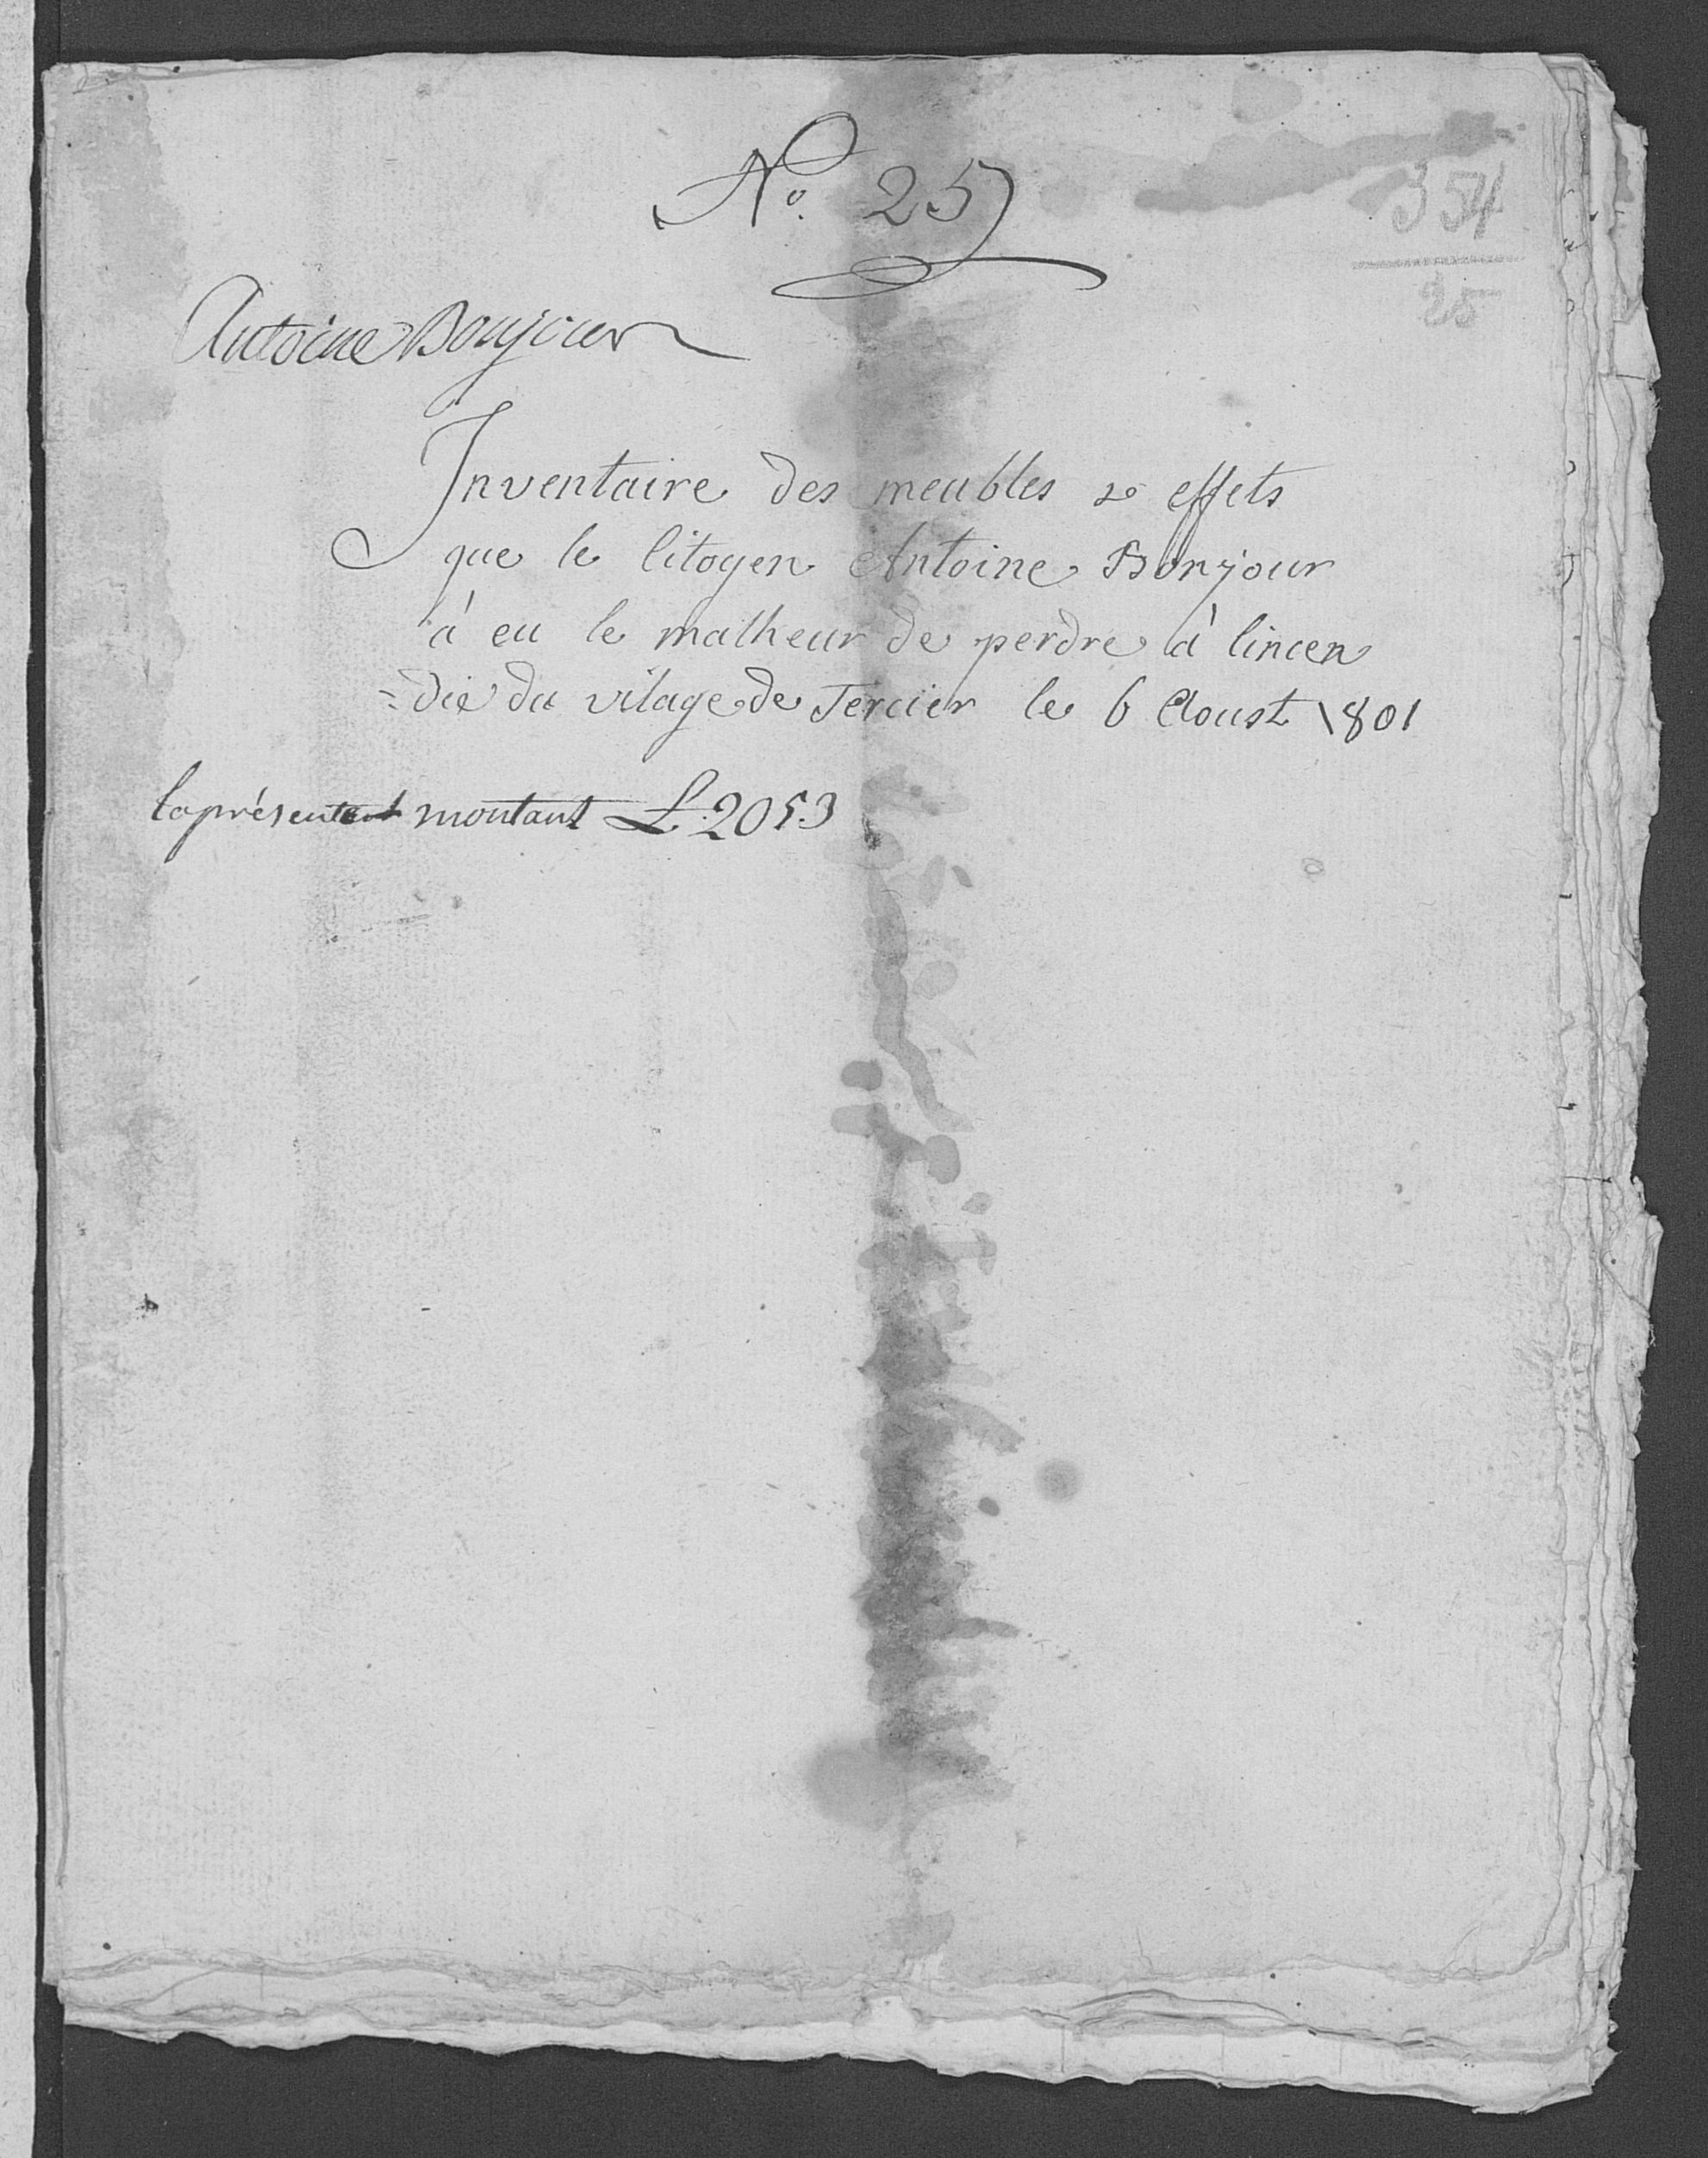 N.o 25
354
25
Antoine Bonjour
Inventaire des meubles & effets
que le Citoyen Antoine Bonjour
à eu le malheur de perdre à lincen
=die du vilage de Tercier le 6 Aoust 1801
montant L. 2053